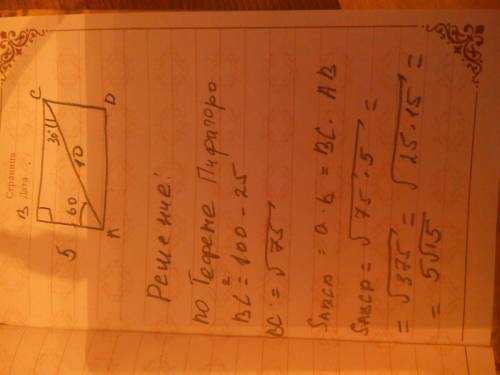 Страница
Дата
B
C
30°
60
10
5
A
D
Решение:
по Теореме Пифагора
BC² = 100 - 25
BC = √75
SABCD = a · b = BC · AB
SABCD = √75 · 5 =
= √375 = √25 · 15 =
= 5√15